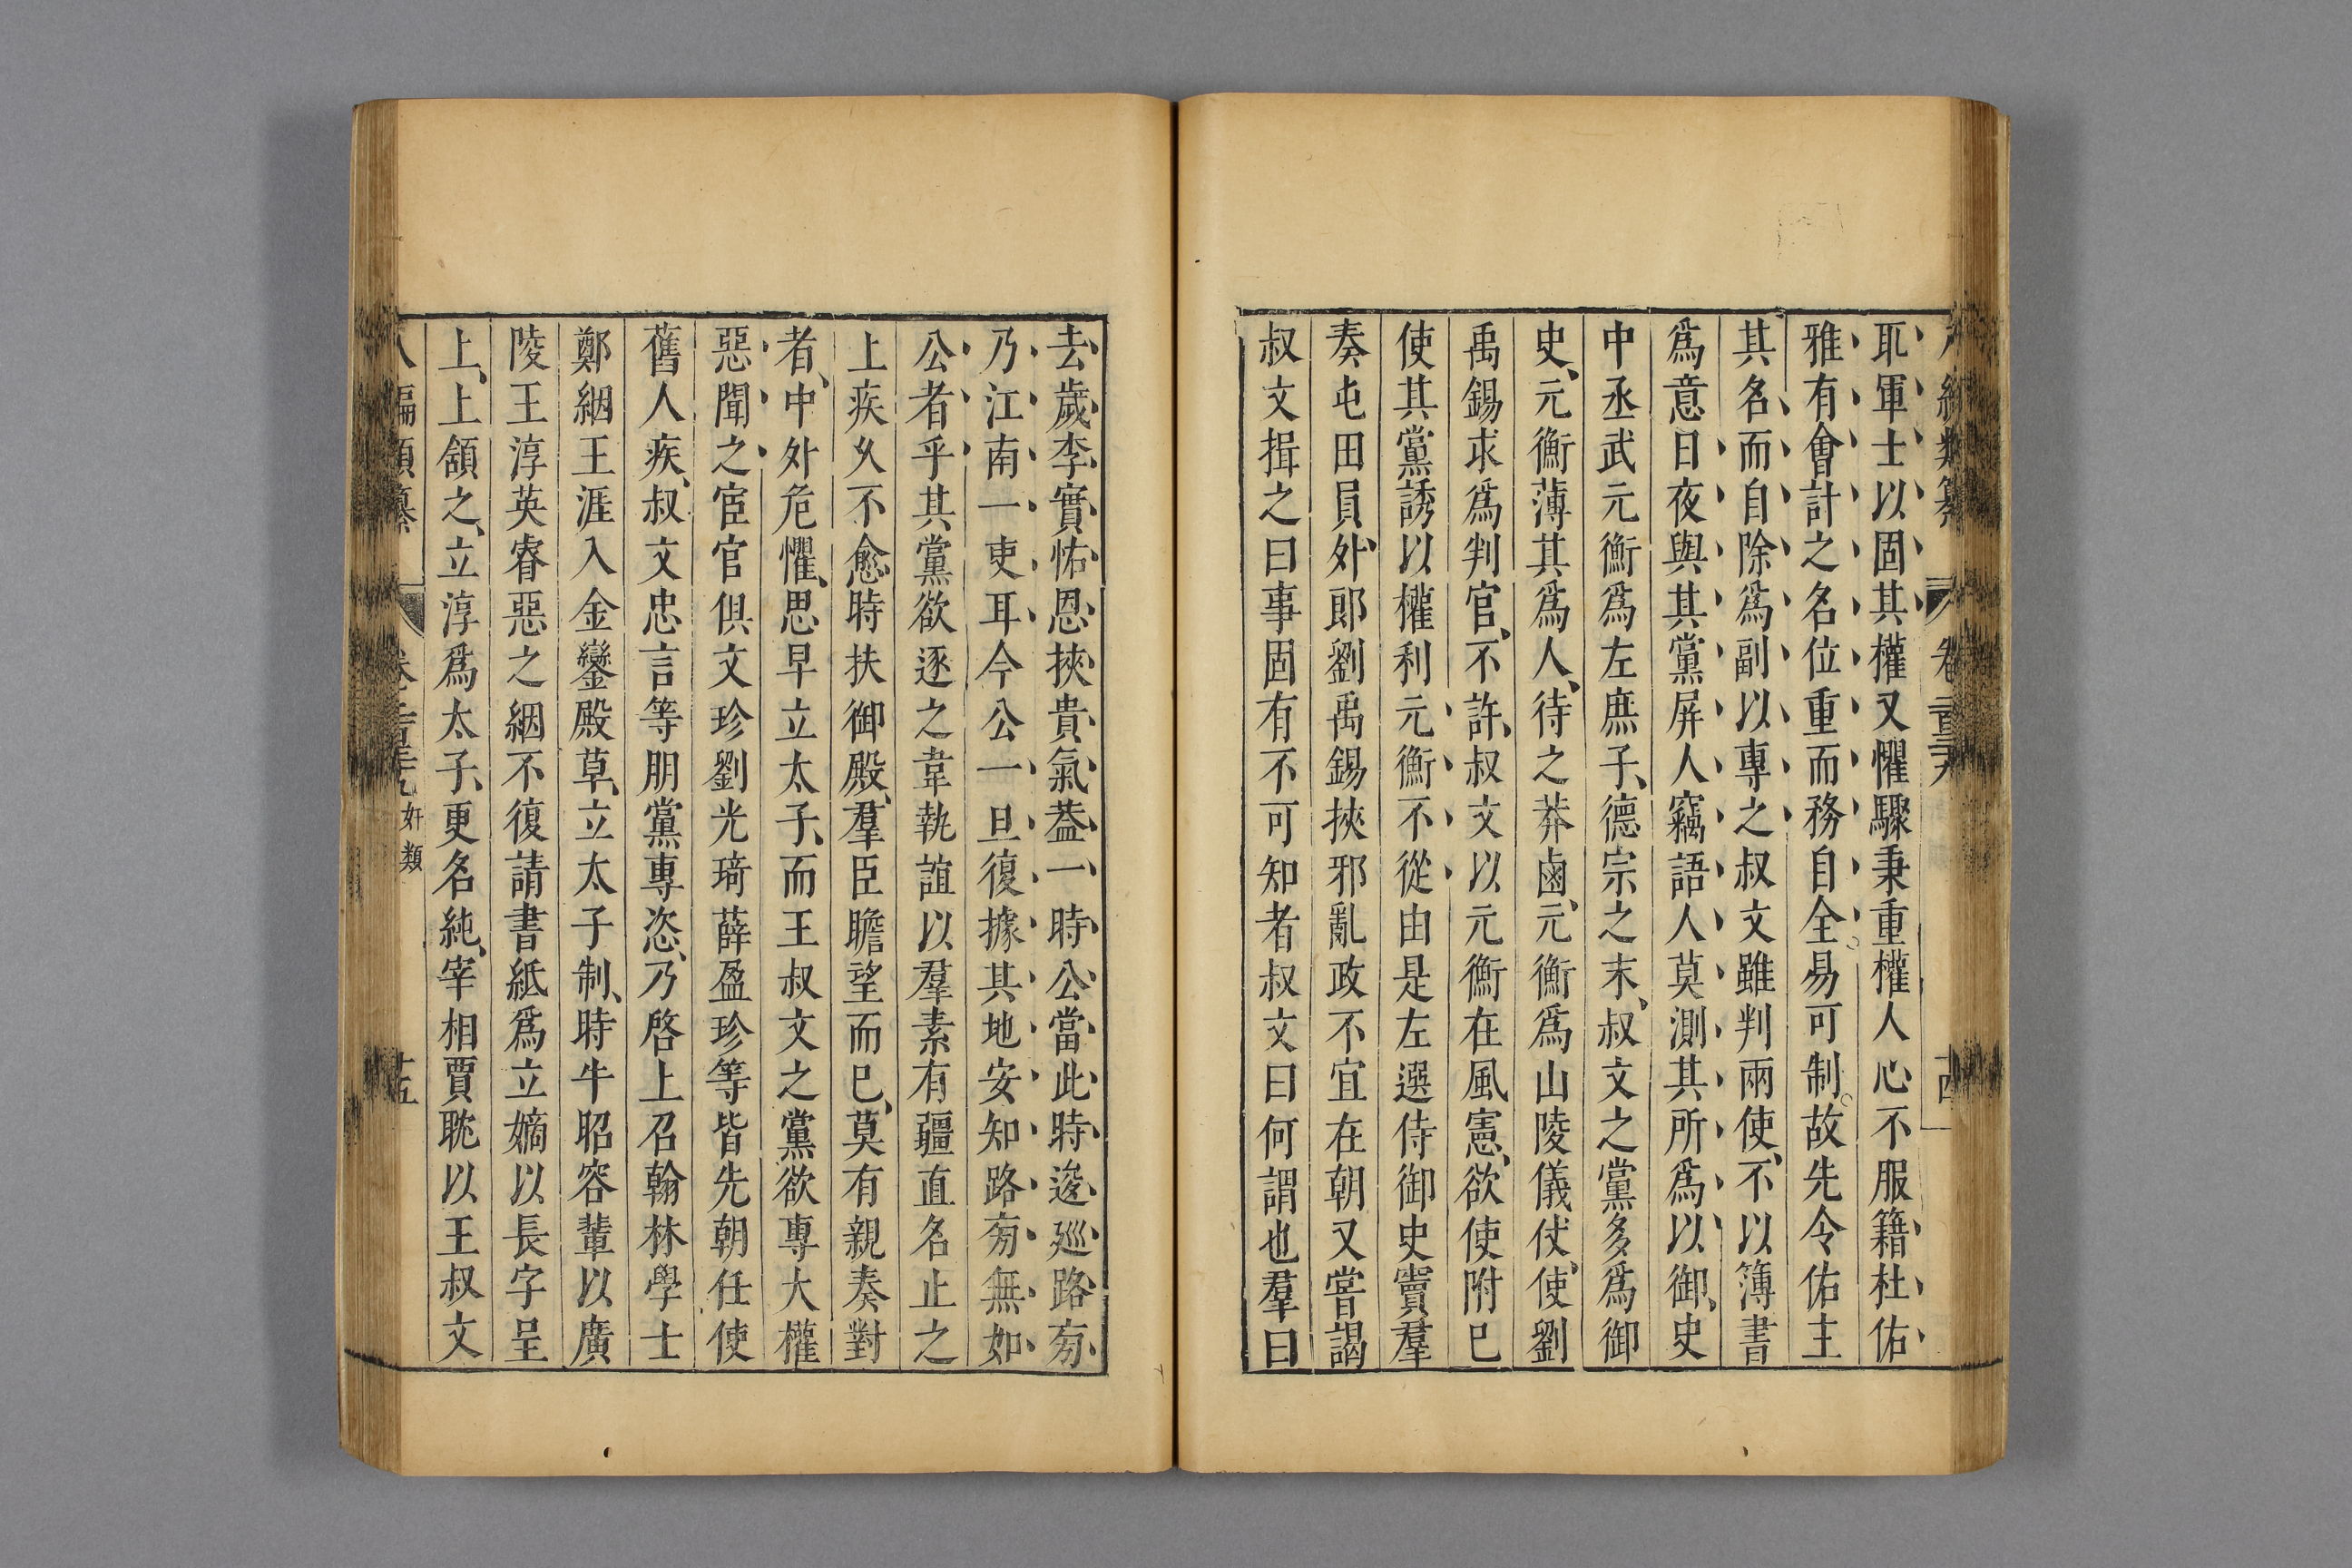 耴軍士以固其權又懼驟秉重權人心不服籍杜佑
雅有會計之名位重而務自全易可制故先令佑主
其名而自除爲副以專之叔文雖判兩使不以簿書
爲意日夜與其黨屏人竊語人莫測其所爲以御史
中丞武元衡爲左庶子德宗之末叔文之黨多爲御
史元衡薄其爲人待之莽鹵元衡爲山陵儀仗使劉
禹錫求爲判官不許叔文以元衡在風憲欲使附已
使其黨誘以權利元衡不從由是左選侍御史竇羣
奏屯田員外郎劉禹錫挾邪亂政不宜在朝又嘗謁
叔文揖之曰事固有不可知者叔文曰何謂也羣曰
去歲李實怙恩挾貴氣葢一時公當此時逡廵路旁
乃江南一吏耳今公一旦復據其地安知路旁無如
公者乎其黨欲逐之韋執誼以羣素有疆直名止之
上疾久不愈時扶御殿羣臣瞻望而已莫有親奏對
者中外危懼思早立太子而王叔文之黨欲專大權
惡聞之宦官俱文珍劉光琦薛盈珍等皆先朝任使
舊人疾叔文忠言等朋黨專恣乃啓上召翰林學士
鄭絪王涯入金鑾殿草立太子制時牛昭容輩以廣
陵王淳英睿惡之絪不復請書紙爲立嫡以長字呈
上上頷之立淳爲太子更名純宰相賈耽以王叔文
奸類
十五